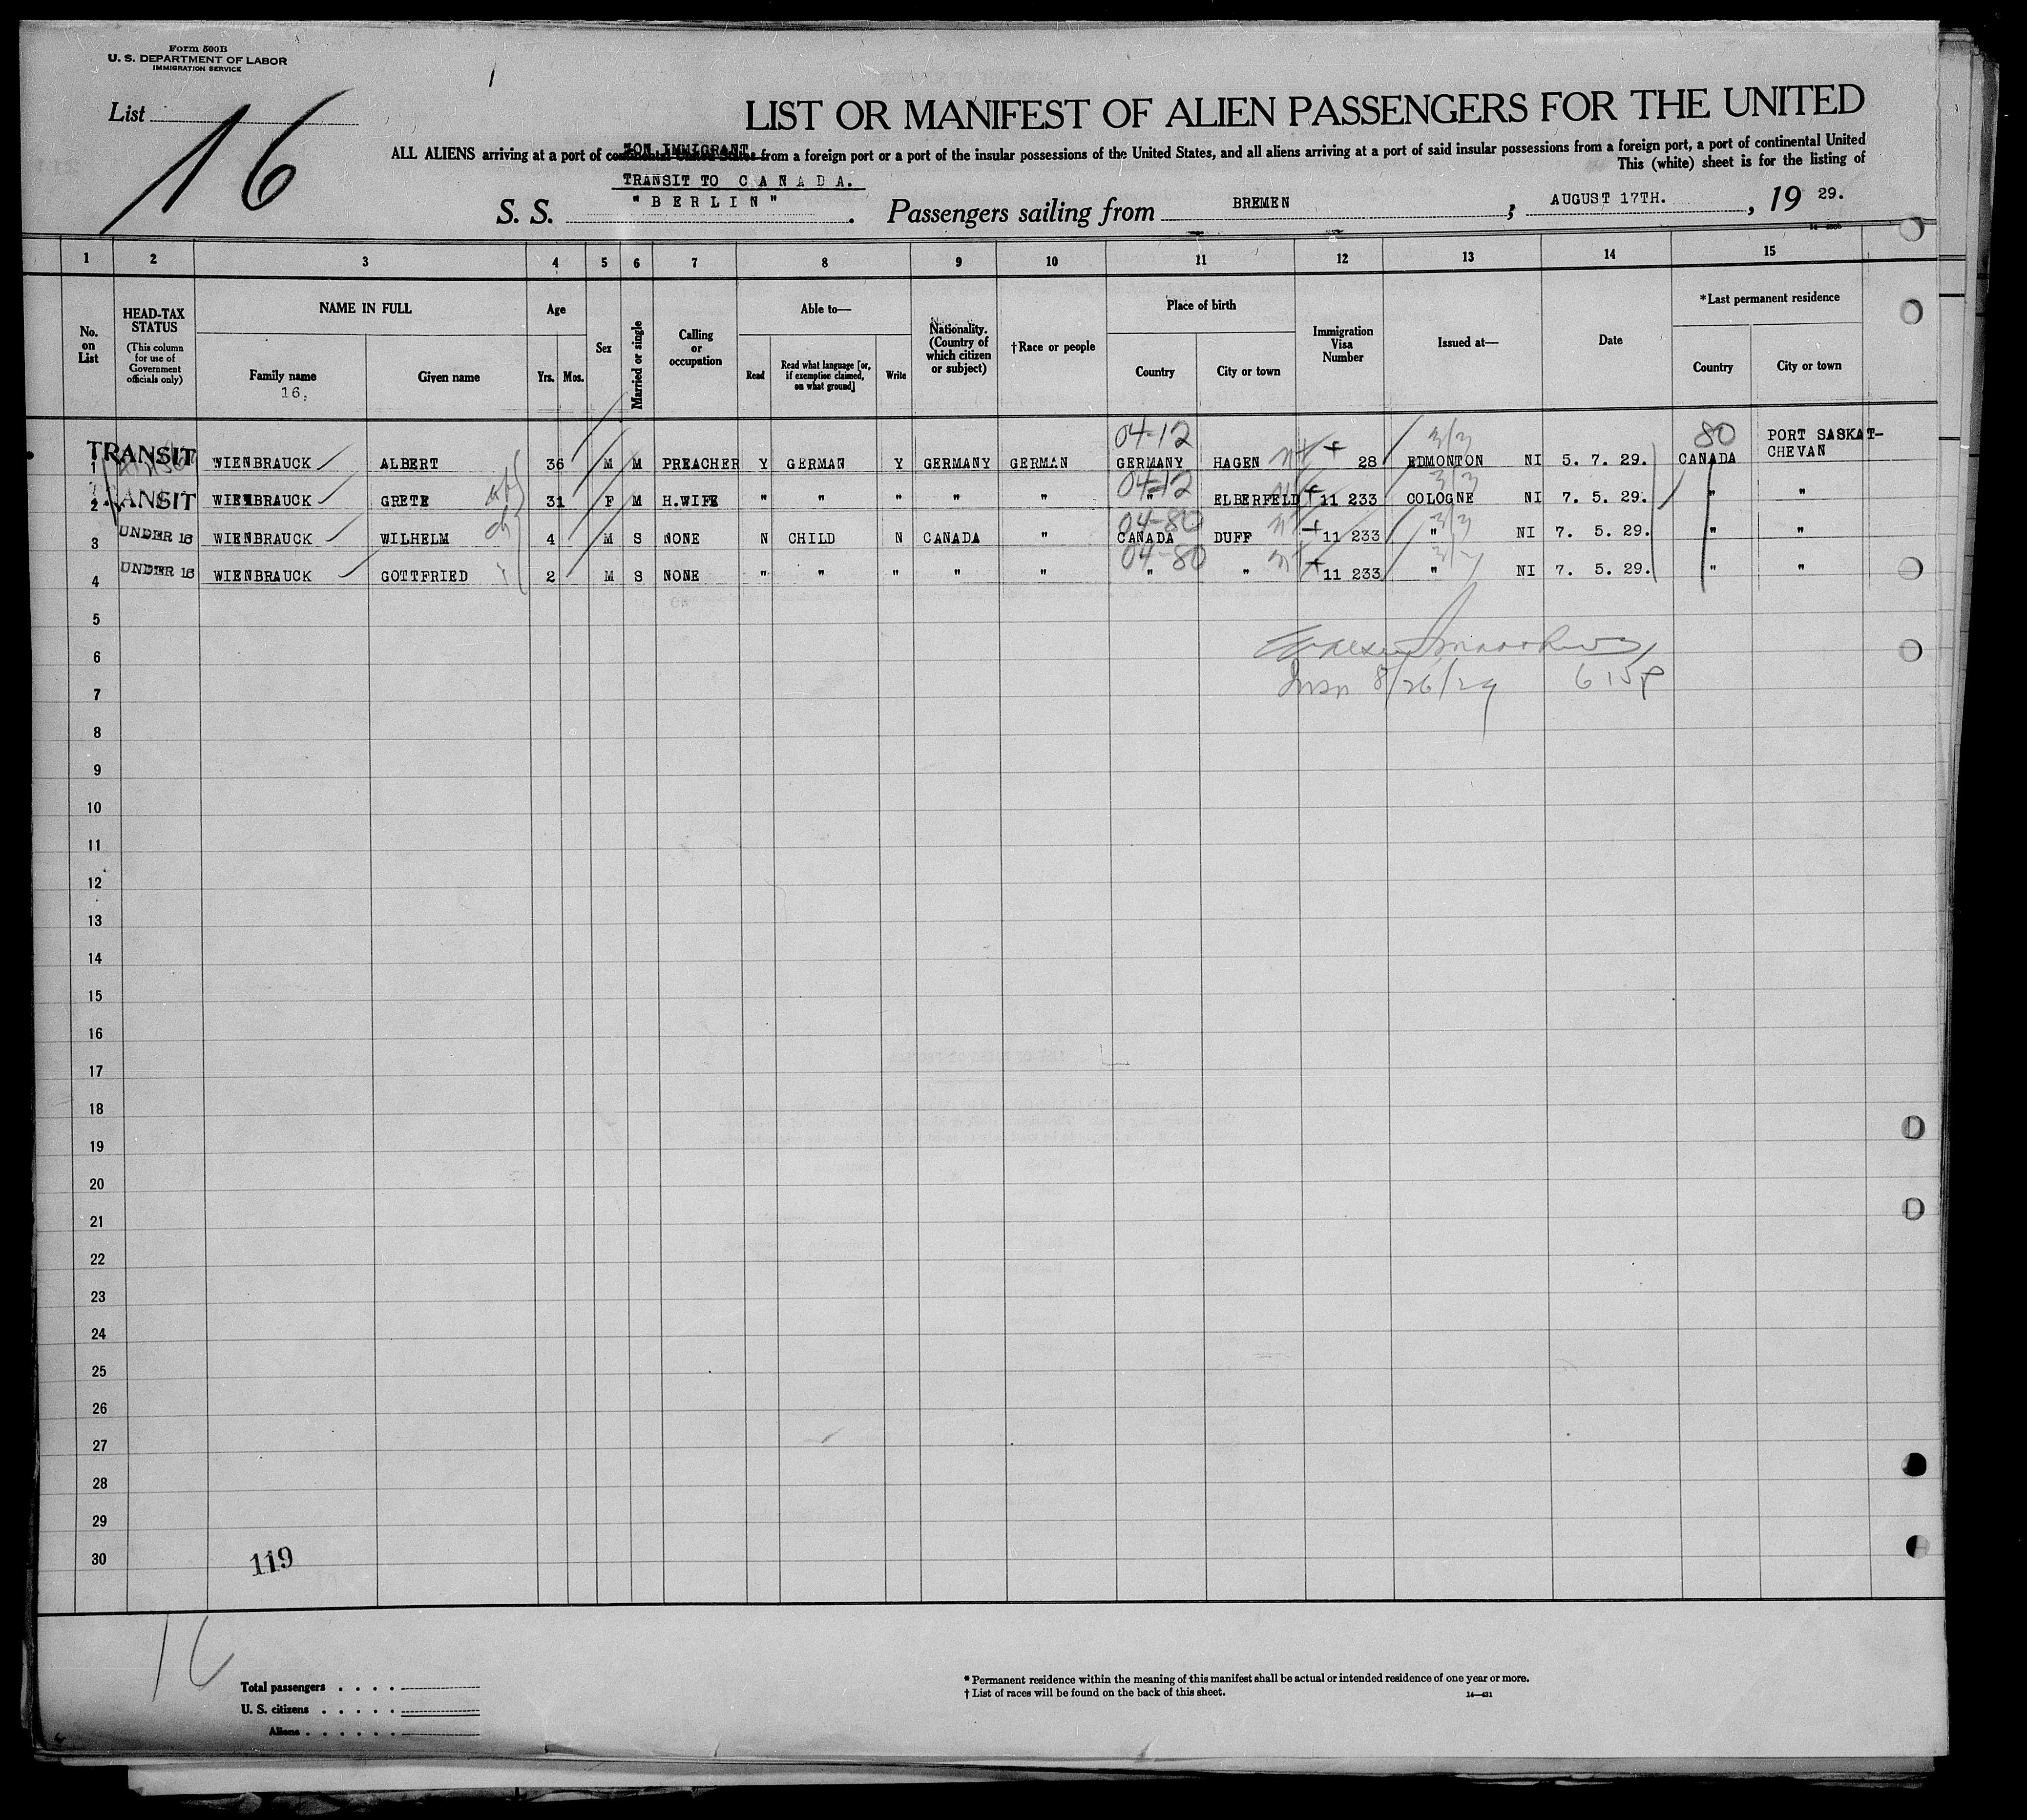 Form 500B
U. S. DEPARTMENT OF LABOR
IMMIGRATION SERVICE
List
16
LIST OR MANIFEST OF ALIEN PASSENGERS FOR THE UNITED
NON IMMIGRANT
ALL ALIENS arriving at a port of continental United States from a foreign port or a port of the insular possessions of the United States, and all aliens arriving at a port of said insular possessions from a foreign port, a port of continental United
This (white) sheet is for the listing of
TRANSIT TO CANADA.
S. S. "BERLIN". Passengers sailing from BREMEN, AUGUST 17TH., 19 29.
1 2 3 4 5 6 7 8 9 10 11 12 13 14 15
No. on List
HEAD-TAX STATUS
(This column for use of Government officials only)
NAME IN FULL
Family name
16.
Given name
Age
Yrs. Mos.
Sex
Married or single
Calling or occupation
Able to—
Read
Read what language [or, if exemption claimed, on what ground]
Write
Nationality. (Country of which citizen or subject)
†Race or people
Place of birth
Country
City or town
Immigration Visa Number
Issued at—
Date
*Last permanent residence
Country
City or town
04-12 3/3 80 PORT SASKAT-
1 TRANSIT WIENBRAUCK ALBERT 36 M M PREACHER Y GERMAN Y GERMANY GERMAN GERMANY HAGEN 28 EDMONTON NI 5. 7. 29. CANADA CHEVAN
04-12 3/3
2 TRANSIT WIENBRAUCK GRETE 31 F M H.WIFE " " " " " " ELBERFELD 11 233 COLOGNE NI 7. 5. 29. " "
04-80 3/3
3 UNDER 16 WIENBRAUCK WILHELM 4 M S NONE N CHILD N CANADA " CANADA DUFF 11 233 " NI 7. 5. 29. " "
04-80
4 UNDER 16 WIENBRAUCK GOTTFRIED 2 M S NONE " " " " " " " 11 233 " NI 7. 5. 29. " "
5
6
7 8/26/29
8
9
10
11
12
13
14
15
16
17
18
19
20
21
22
23
24
25
26
27
28
29
30
119
16
Total passengers
U. S. citizens
Aliens
* Permanent residence within the meaning of this manifest shall be actual or intended residence of one year or more.
† List of races will be found on the back of this sheet.
14—431